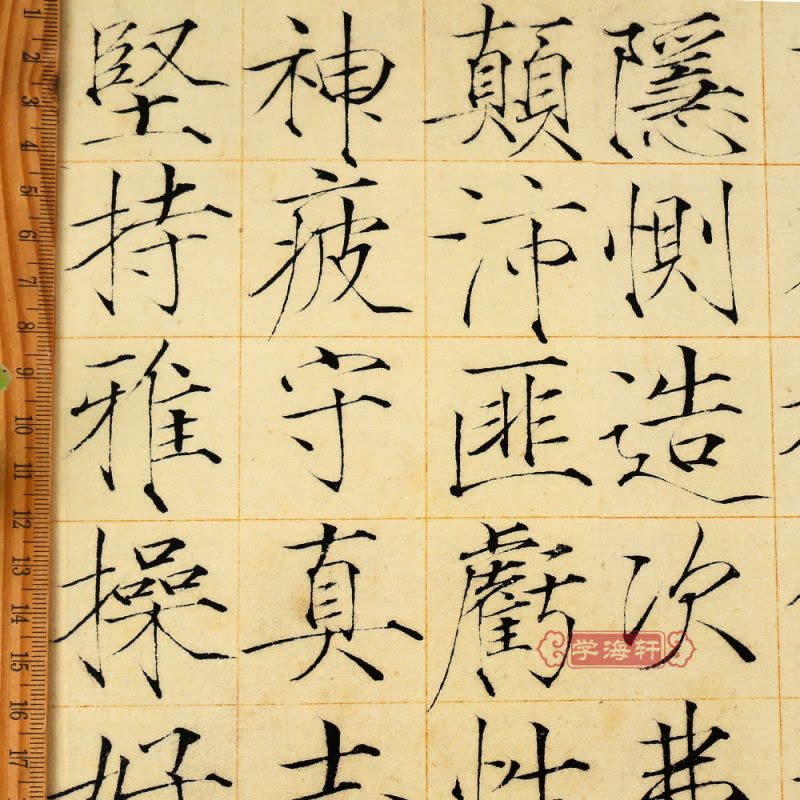 隱惻造次弗
顛沛匪虧性
神疲守真志
堅持雅操好
学海轩
1
2
3
4
5
6
7
8
9
10
11
12
13
14
15
16
17